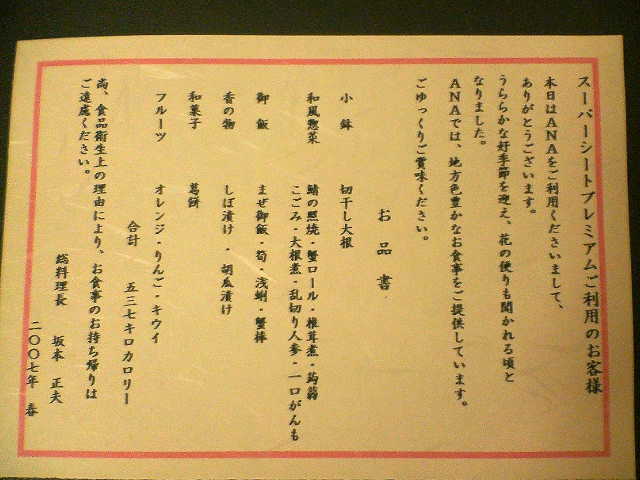 スーパーシートプレミアムご利用のお客様
本日はANAをご利用くださいまして、
ありがとうございます。
うららかな好季節を迎え、花の便りも聞かれる頃と
なりました。
ANAでは、地方色豊かなお食事をご提供しています。
ごゆっくりご賞味ください。
お品書
小鉢 切干し大根
和風惣菜 鯖の照焼・蟹ロール・椎茸煮・蒟蒻
こごみ・大根煮・乱切り人参・一口がんも
御飯 まぜ御飯・筍・浅蜊・蟹棒
香の物 しば漬け・胡瓜漬け
和菓子 葛餅
フルーツ オレンジ・りんご・キウイ
合計 五三七キロカロリー
尚、食品衛生上の理由により、お食事のお持ち帰りは
ご遠慮ください。
総料理長 坂本 正夫
二〇〇七年 春